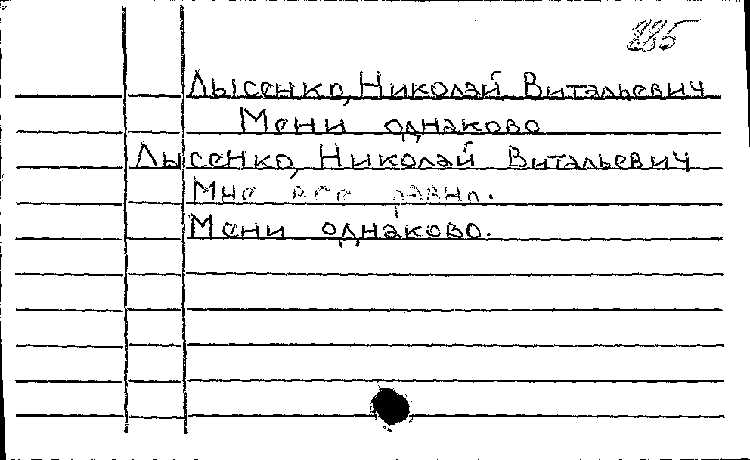 885
Лысенко, Николай Витальевич
Мени однаково
Лысенко, Николай Витальевич
Мне все равно.
Мени однаково.